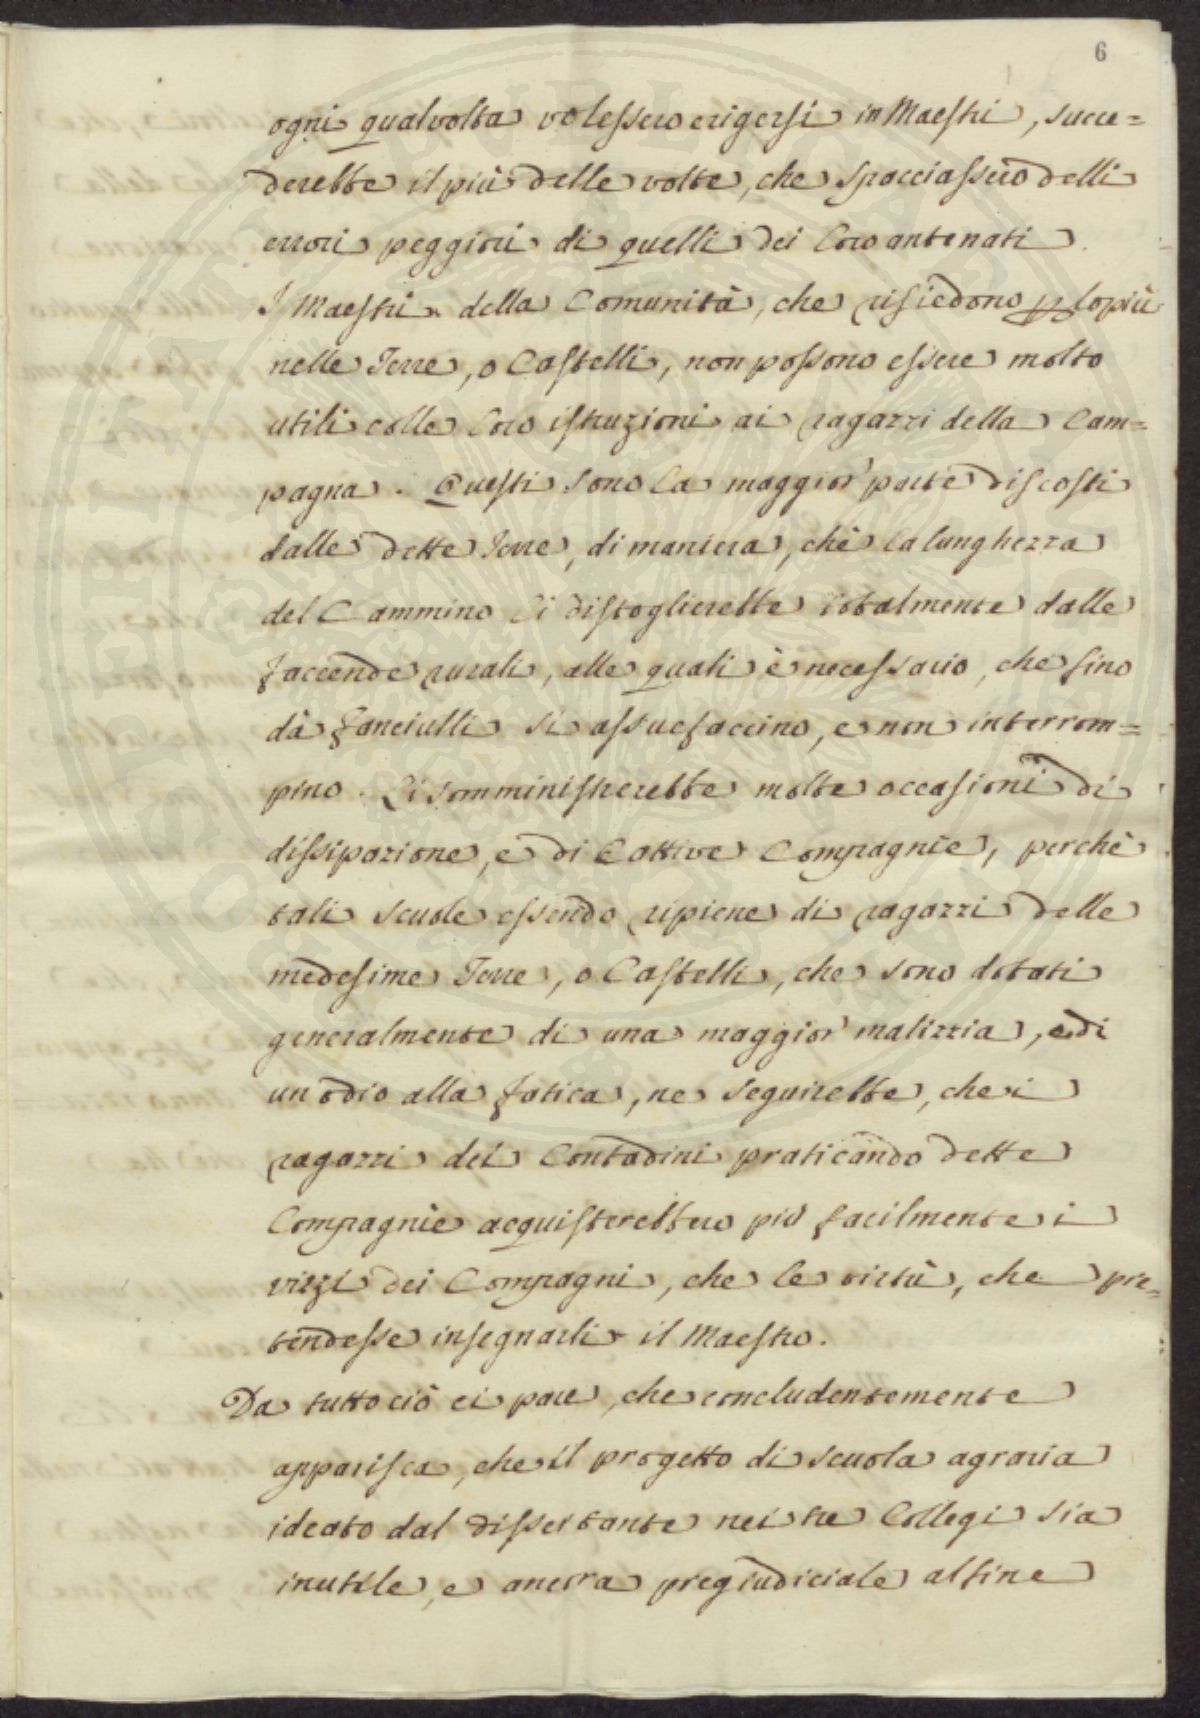 6
ogni qualvolta volessero erigersi in Maestri, succe=
derebbe il più delle volte, che spacciassero delli
errori peggiori di quelli dei loro antenati.
I Maestri della Comunità, che risiedono p lopiù
nelle Terre, o Castelli, non possono essere molto
utili colle loro istruzioni ai ragazzi della Cam=
pagna. Questi sono la maggior parte discosti
dalle dette Terre, di maniera, che la lunghezza
del Cammino li distoglierebbe totalmente dalle
faccende rurali, alle quali è necessario, che sino
da fanciulli si assuefaccino, e non interrom=
pino. Li somministrerebbe molte occasioni di
dissipazione, e di Cattive Compagnìe, perchè
tali scuole essendo ripiene di ragazzi delle
medesime Terre, o Castelli, che sono dotati
generalmente di una maggior malizzia, e di
un odio alla fatica, ne seguirebbe, che i
ragazzi dei Contadini praticando dette
Compagnìe acquisterebbero più facilmente i
vizzi dei Compagni, che le virtù, che pre=
tendesse insegnarli il Maestro.
Da tutto ciò ci pare, che concludentemente
apparisca, che il progetto di scuola agraria
ideato dal dissertante nei tre Collegi sia
inutile, e ancora pregiudiciale al fine